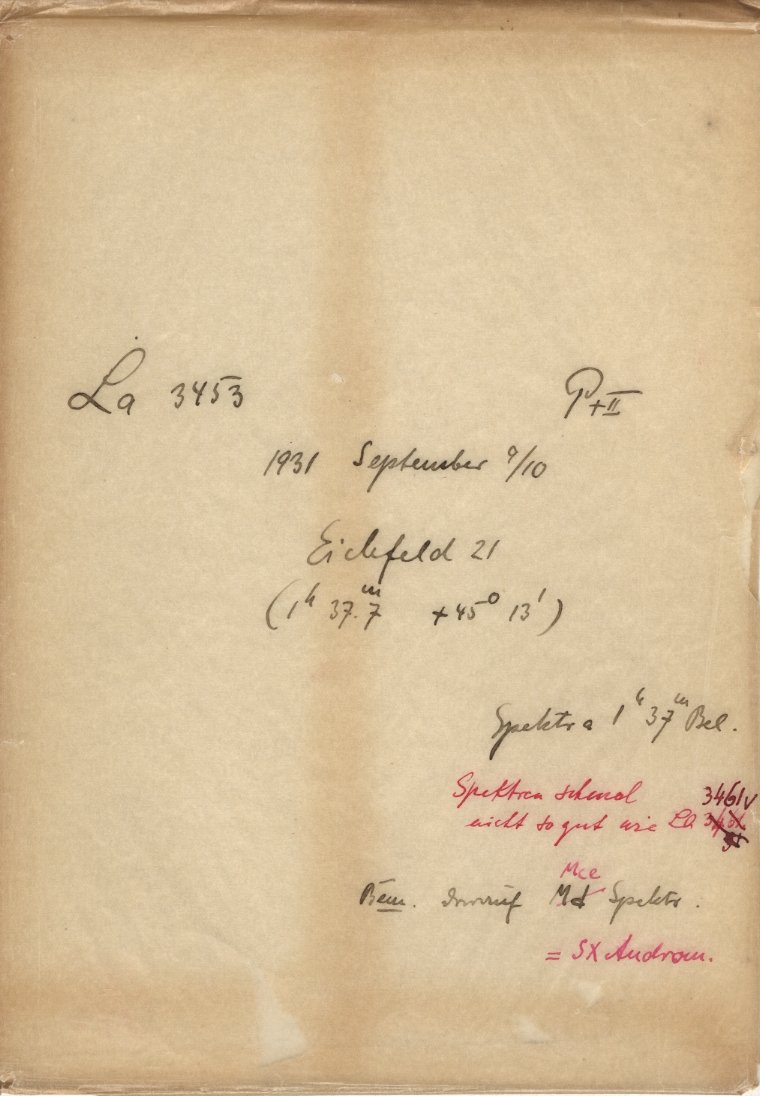 La 3453 P+II
1931 September 9/10
Eichfeld 21
(1h 37.m7 +45° 13')
Spektra 1h 37m Bel.
Spektren schmal 3461
nicht so gut wie La
Mce
Bem. Md Spektr.
= SX Androm.